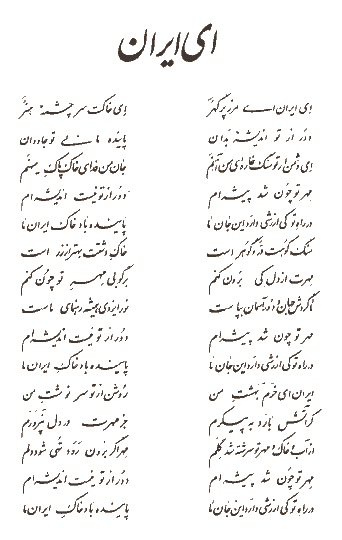 ای ایران
ای ایران ای مرز پر گهر ای خاکت سر چشمهٔ هنر
دور از تو اندیشهٔ بدان پاینده مانی تو جاودان
ای دشمن ار تو سنگ خاره‌ای من آهنم جان من فدای خاک پاک میهنم
مهر تو چون شد پیشه‌ام دور از تو نیست اندیشه‌ام
در راه تو کی ارزشی دارد این جان ما پاینده باد خاک ایران ما
سنگ کوهت در و گوهر است خاک دشتت بهتر از زر است
مهرت از دل کی برون کنم بر گو بی مهر تو چون کنم
تا گردش جهان و دور آسمان بپاست نور ایزدی همیشه رهنمای ماست
مهر تو چون شد پیشه‌ام دور از تو نیست اندیشه‌ام
در راه تو کی ارزشی دارد این جان ما پاینده باد خاک ایران ما
ایران ای خرم بهشت من روشن از تو سرنوشت من
گر آتش بارد به پیکرم جز مهرت در دل نپرورم
از آب و خاک و مهر تو سرشته شد گلم مهر اگر برون رود تهی شود دلم
مهر تو چون شد پیشه‌ام دور از تو نیست اندیشه‌ام
در راه تو کی ارزشی دارد این جان ما پاینده باد خاک ایران ما